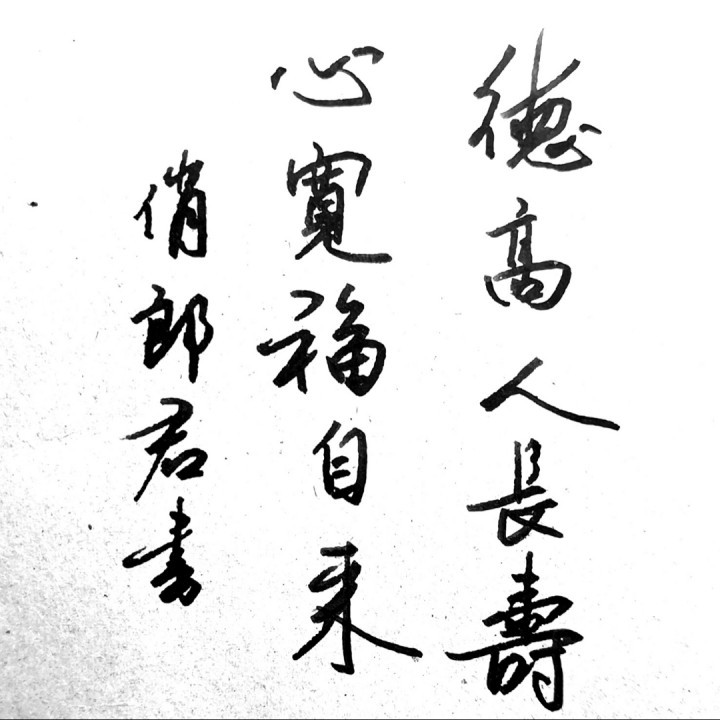 德高人長壽
心寬福自来
俏郎君書